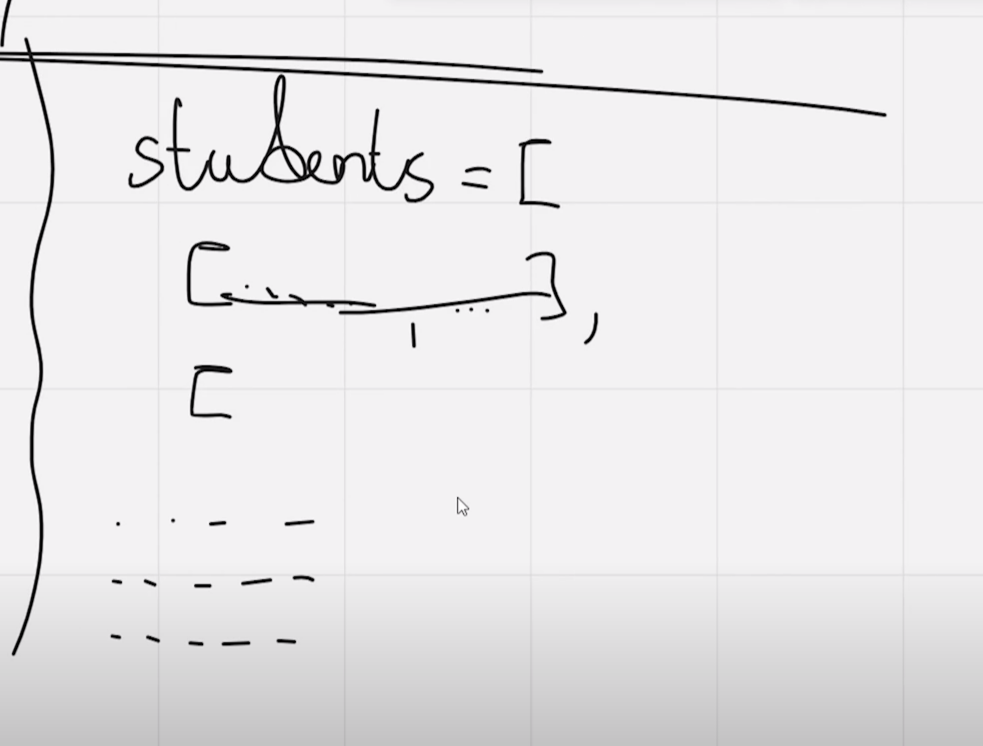 students = [
[ ... ],
1
[